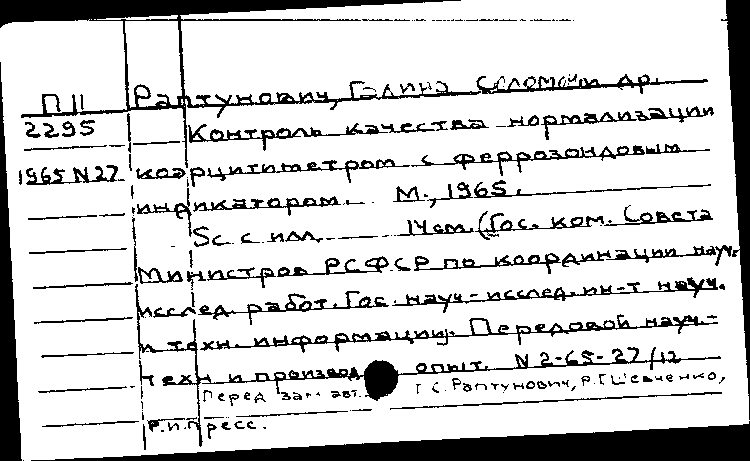 П II Раптунович, Галина Соломон др.
2295 Контроль качества нормализации
1965 N27 коэрцитиметром с феррозондовым
индикатором. М., 1965.
5с с илл. 14 см. (Гос. ком. Совета
Министров РСФСР по координации науч.-
исслед. работ. Гос. науч-исслед. ин-т науч.
и техн. информации. Передовой науч.-
техн и производ опыт. N 2-65-27/12
Перед заг. авт. Г.С. Раптунович, Р.Г. Шевченко,
Р.И. Пресс.